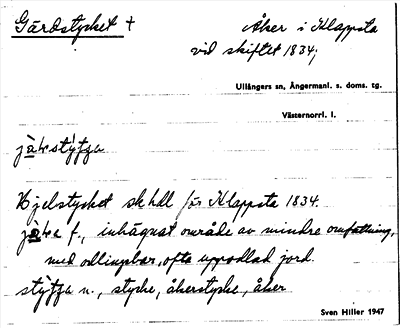 Gärdstycket +
Åker i Klappsta
vid skiftet 1834;
Ullångers sn, Ångermanl. s. doms. tg.
Västernorrl. l.
jä̀kstýʃʒa
Hjelstycket sk hdl för Klappsta 1834.
f., inhägnat område av mindre omfattning,
med odlingsbar, ofta uppodlad jord.
n., stycke, åkerstycke, åker
Sven Hiller 1947